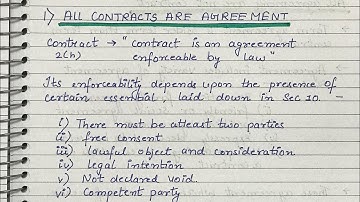 1) ALL CONTRACTS ARE AGREEMENT
Contract → "contract is an agreement
2(h) enforceable by law"
Its enforceability depends upon the presence of
certain essential, laid down in Sec 10. -
i) There must be atleast two parties
ii) free consent
iii) lawful object and consideration
iv) legal intention
v) Not declared void.
vi) Competent party